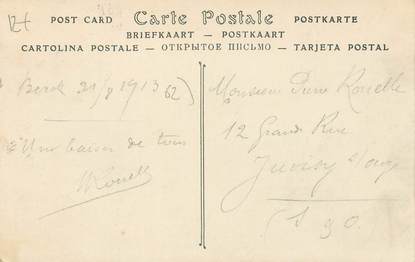 POST CARD Carte Postale POSTKARTE
BRIEFKAART — POSTKAART
CARTOLINA POSTALE — ОТКРЫТОЕ ПИСЬМО — TARJETA POSTAL
Berck 21/8 1913
62)
Un baiser de tous
Monsieur Pierre Rouelle
12 Grande Rue
Juvisy s/ orge
S & O.